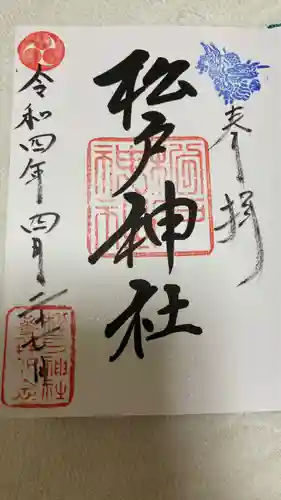 奉拝
松戸神社
令和四年四月二十七日